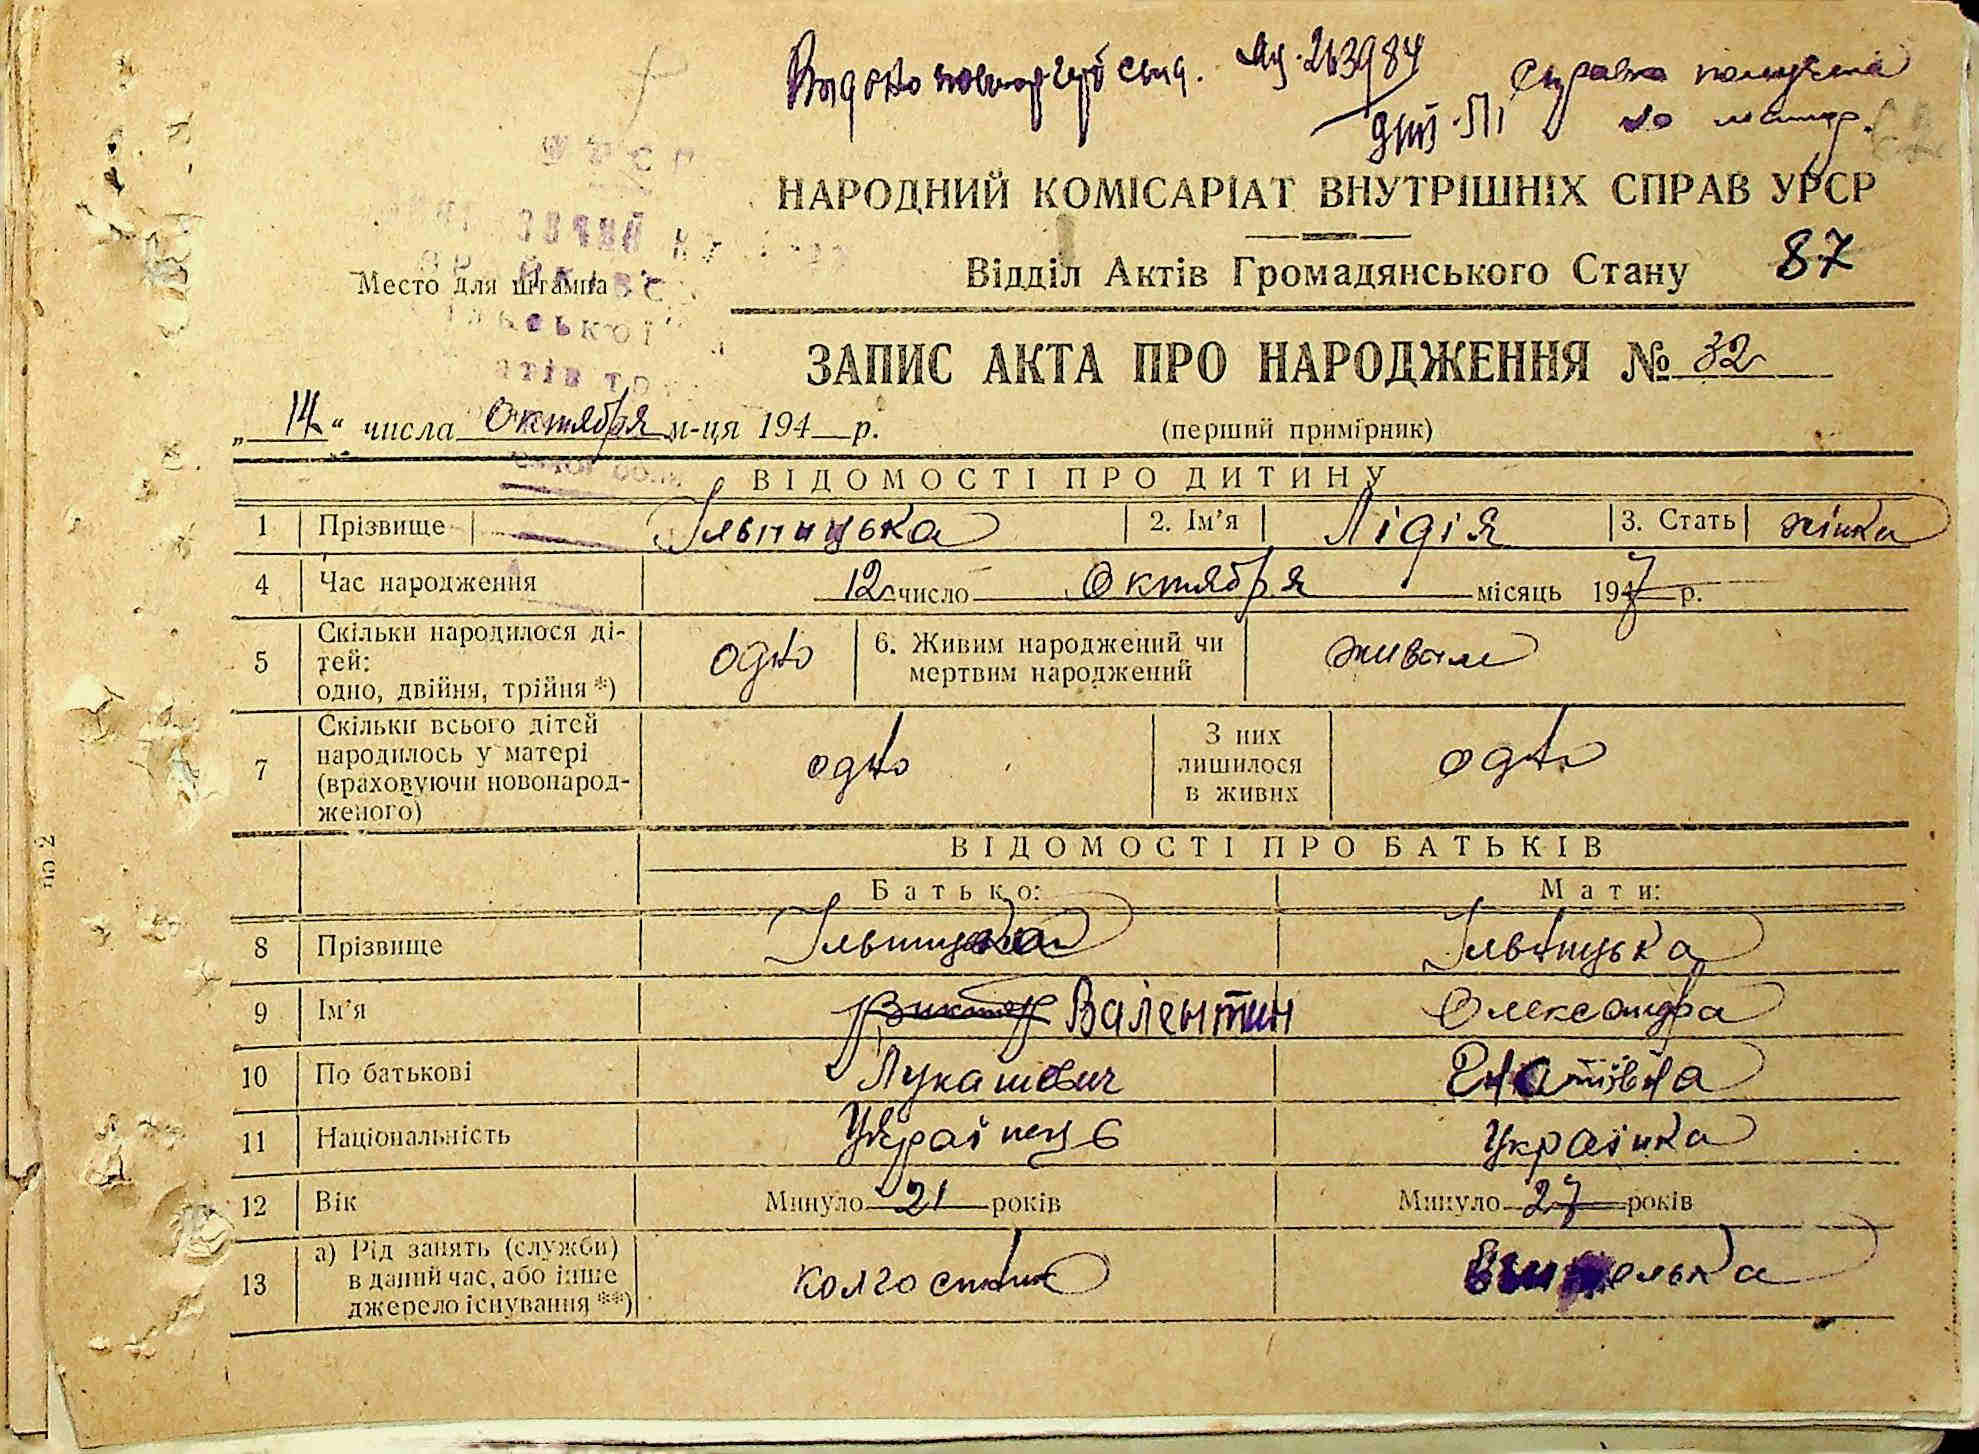 Видано повтор. свид. 263984
Справка получена
НАРОДНИЙ КОМІСАРІАТ ВНУТРІШНІХ СПРАВ УРСР
Место для штампа
Відділ Актів Громадянського Стану 87
ЗАПИС АКТА ПРО НАРОДЖЕННЯ № 32
„14“ числа Октября м-ця 194 р.
(перший примірник)
ВІДОМОСТІ ПРО ДИТИНУ
1 Прізвище Ільницька 2. Ім'я Лідія 3. Стать жінка
4 Час народження 12 число Октября місяць 1947 р.
5 Скільки народилося ді-
тей:
одно, двійня, трійня *) одно 6. Живим народжений чи
мертвим народжений живим
7 Скільки всього дітей
народилось у матері
(враховуючи новонарод-
женого) одно З них
лишилося
в живих одно
ВІДОМОСТІ ПРО БАТЬКІВ
Батько: Мати:
8 Прізвище Ільницька
9 Ім'я Виктор Валентин Олександра
10 По батькові Лукашович Гнатівна
11 Національність Українець Українка
12 Вік Минуло 21 років Минуло 27 років
13 а) Рід занять (служби)
в даний час, або інше
джерело існування **) колгоспник